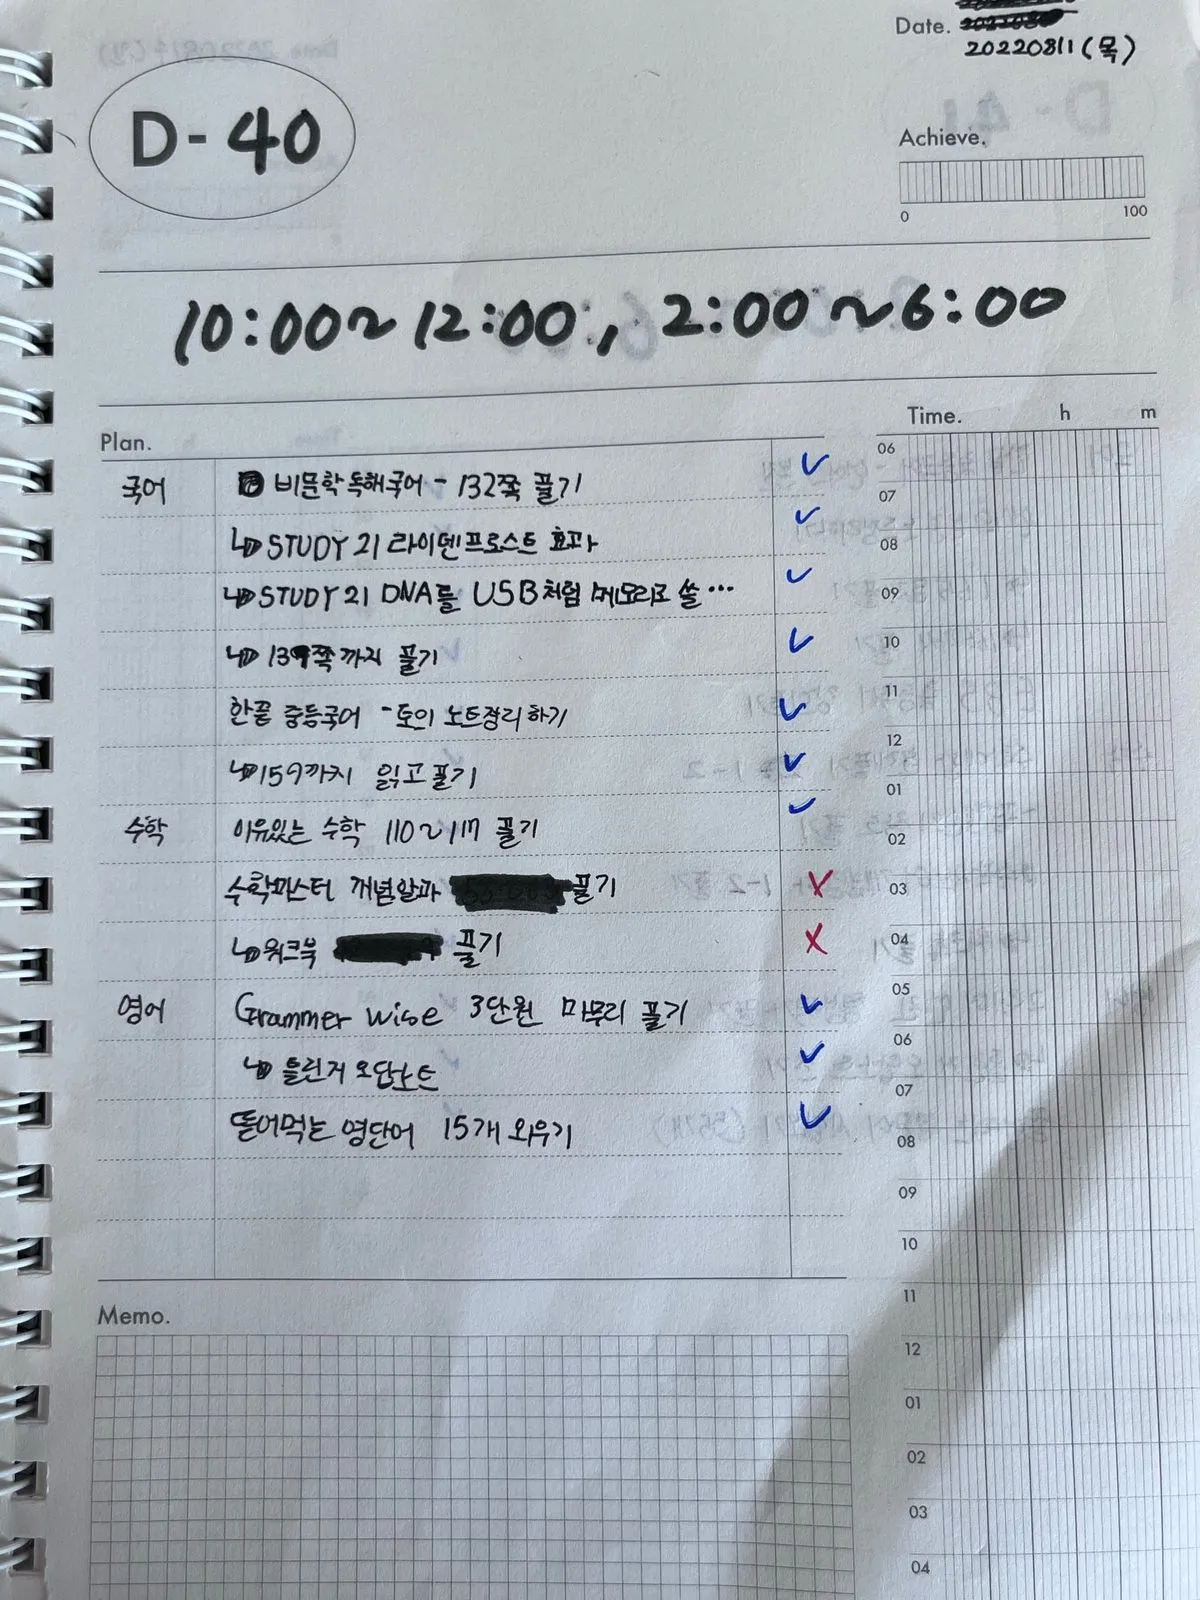 Date.
20220811 (목)
D-40
Achieve.
0 100
10:00~12:00, 2:00~6:00
Plan.
Time. h m
국어 비문학 독해국어 - 132쪽 풀기
↳ STUDY 21 라이덴프로스트 효과
↳ STUDY 21 DNA를 USB처럼 메모리로 쓸…
↳ 139쪽까지 풀기
한끝 중등국어 - 토의 노트정리하기
↳ 159까지 읽고 풀기
수학 이유있는 수학 110~117 풀기
수학마스터 개념알파 풀기
↳ 워크북 풀기
영어 Grammer Wise 3단원 마무리 풀기
↳ 틀린거 오답노트
뜯어먹는 영단어 15개 외우기
06
07
08
09
10
11
12
01
02
03
04
05
06
07
08
09
10
11
12
01
02
03
04
Memo.